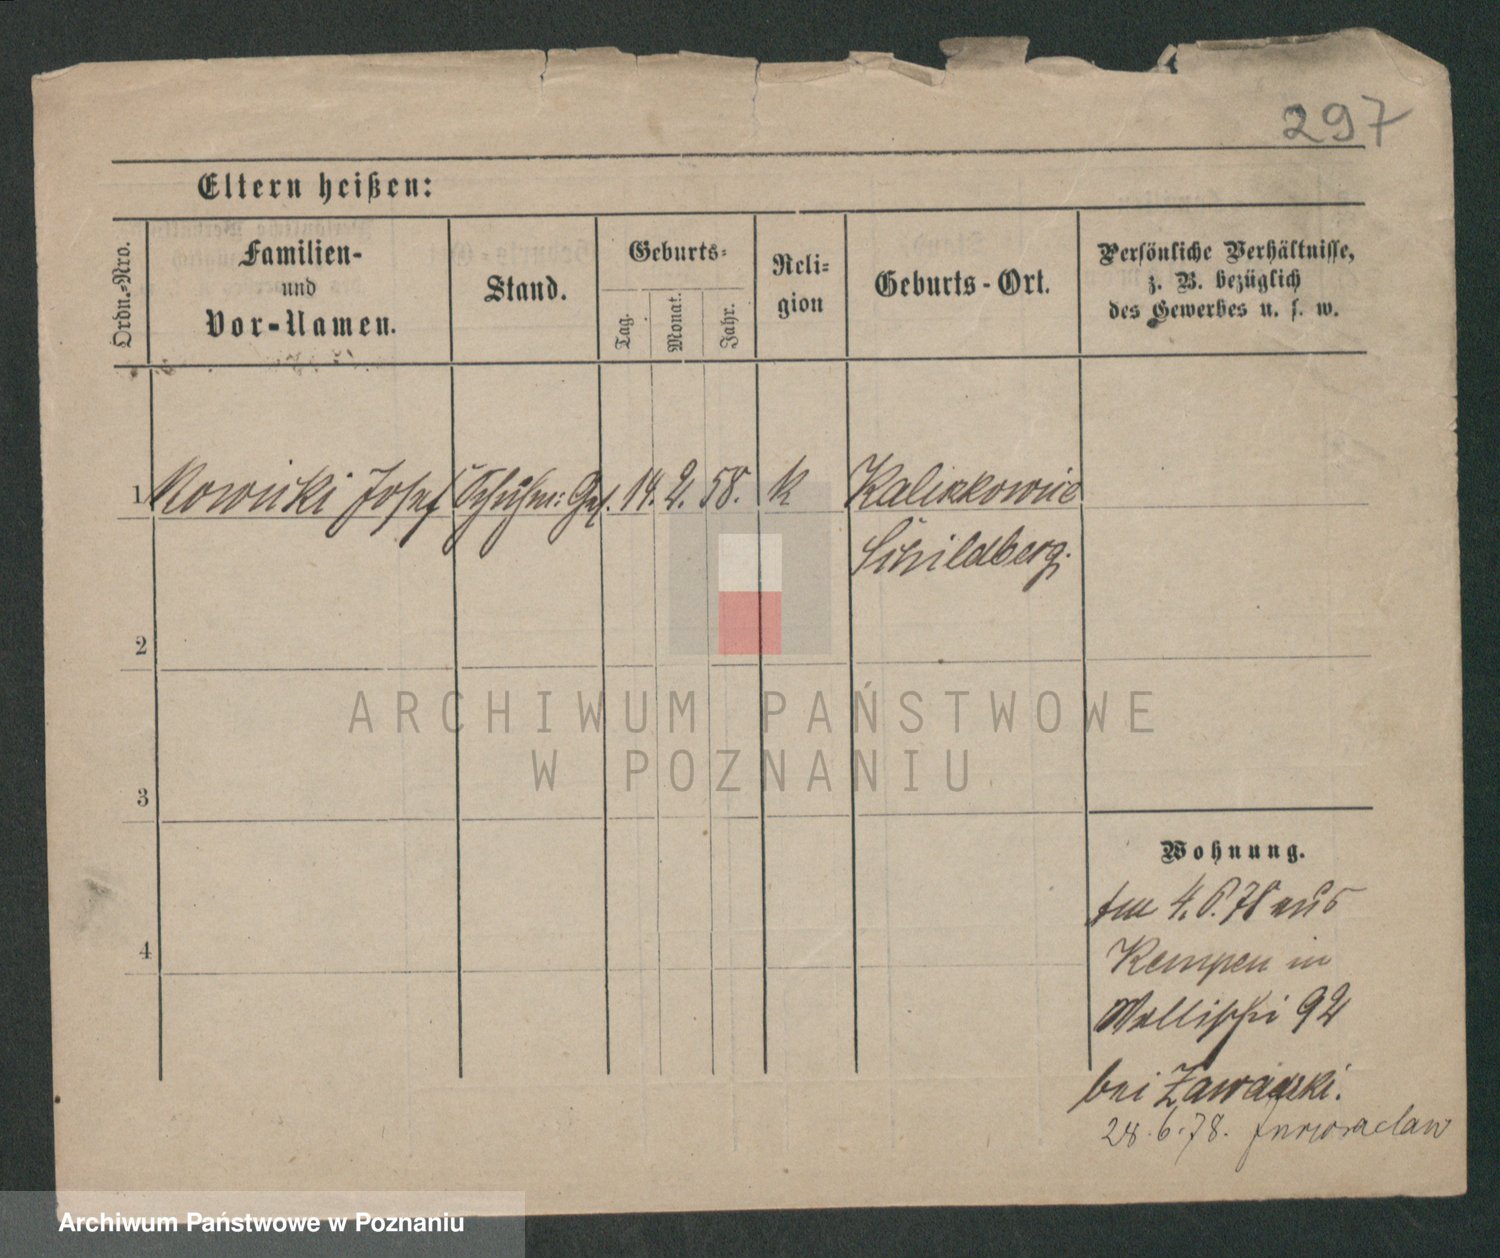 297
Eltern heißen:
Ordn.-Nro.
Familien-
und
Vor-Namen.
Stand.
Geburts-
Tag.
Monat.
Jahr.
Reli-
gion
Geburts-Ort.
Persönliche Verhältnisse,
z. B. bezüglich
des Gewerbes u. s. w.
1 Nowicki Josef Schuhm: Ges. 14. 2. 58. k Kaliszkowice
Schildberg.
2
3
4
Wohnung.
am 4. 6. 78 aus
Kempen in
Wallischei 92
bei Zawadzki.
28. 6. 78. Inowraclaw
ARCHIWUM PAŃSTWOWE
W POZNANIU
Archiwum Państwowe w Poznaniu